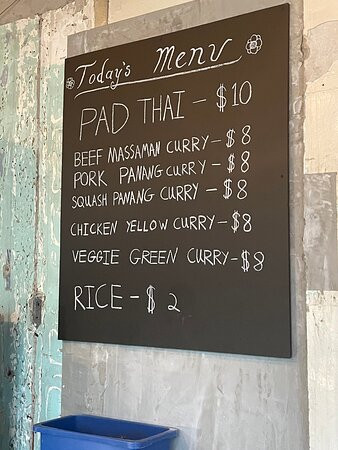 Today's Menu
PAD THAI - $10
BEEF MASSAMAN CURRY - $8
PORK PANANG CURRY - $8
SQUASH PANANG CURRY - $8
CHICKEN YELLOW CURRY - $8
VEGGIE GREEN CURRY - $8
RICE - $2